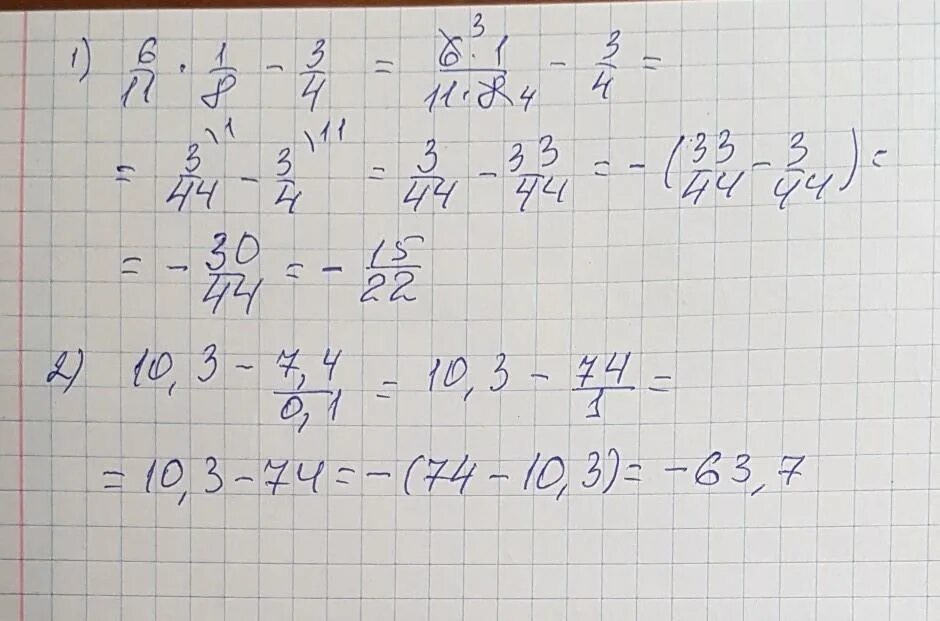 1) 6/11 · 1/8 - 3/4 = 6³ · 1/11 · 8₄ - 3/4 =
= 3/44 \1 - 3/4 \11 = 3/44 - 33/44 = - (33/44 - 3/44) =
= - 30/44 = - 15/22
2) 10,3 - 7,4/0,1 = 10,3 - 74/1 =
= 10,3 - 74 = - (74 - 10,3) = - 63,7